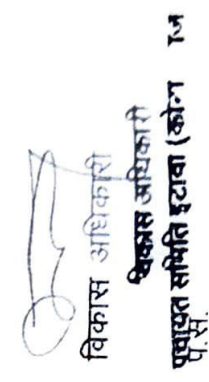 विकास अधिकारी
विकास अधिकारी
पंचायत समिति इटावा (कोटा
प. स.